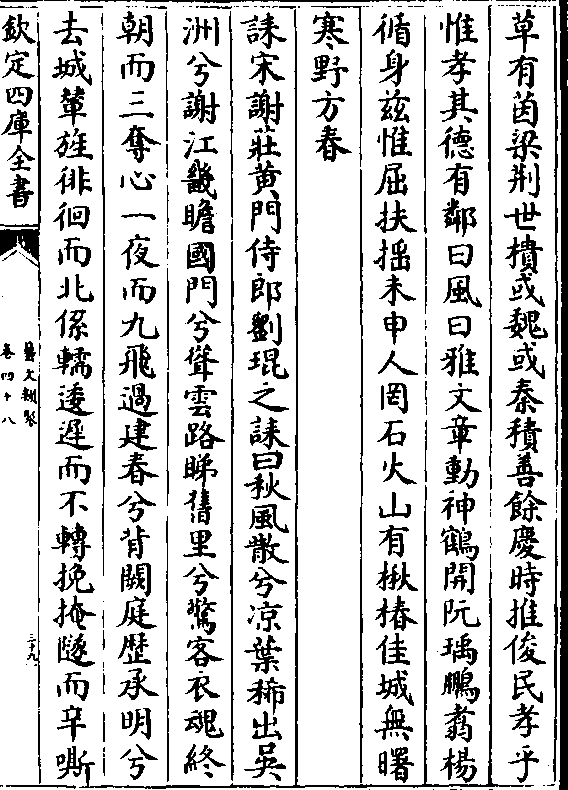 草有茵梁荆世檟或魏或秦積善餘慶時推俊民孝乎
惟孝其德有鄰曰風曰雅文章動神鶴開阮瑀鵬翥楊
循身茲惟屈扶摇未申人罔石火山有楸椿佳城無曙
寒野方春
誄宋謝莊黄門侍郎劉琨之誄曰秋風散兮凉葉稀出吳
洲兮謝江畿瞻國門兮聳雲路睇舊里兮驚客衣魂終
朝而三奪心一夜而九飛過建春兮背闕庭歴承明兮
去城輦旌徘徊而北係轜逶遲而不轉挽掩隧而辛嘶
欽定四庫全書
藝文類聚
卷四十八